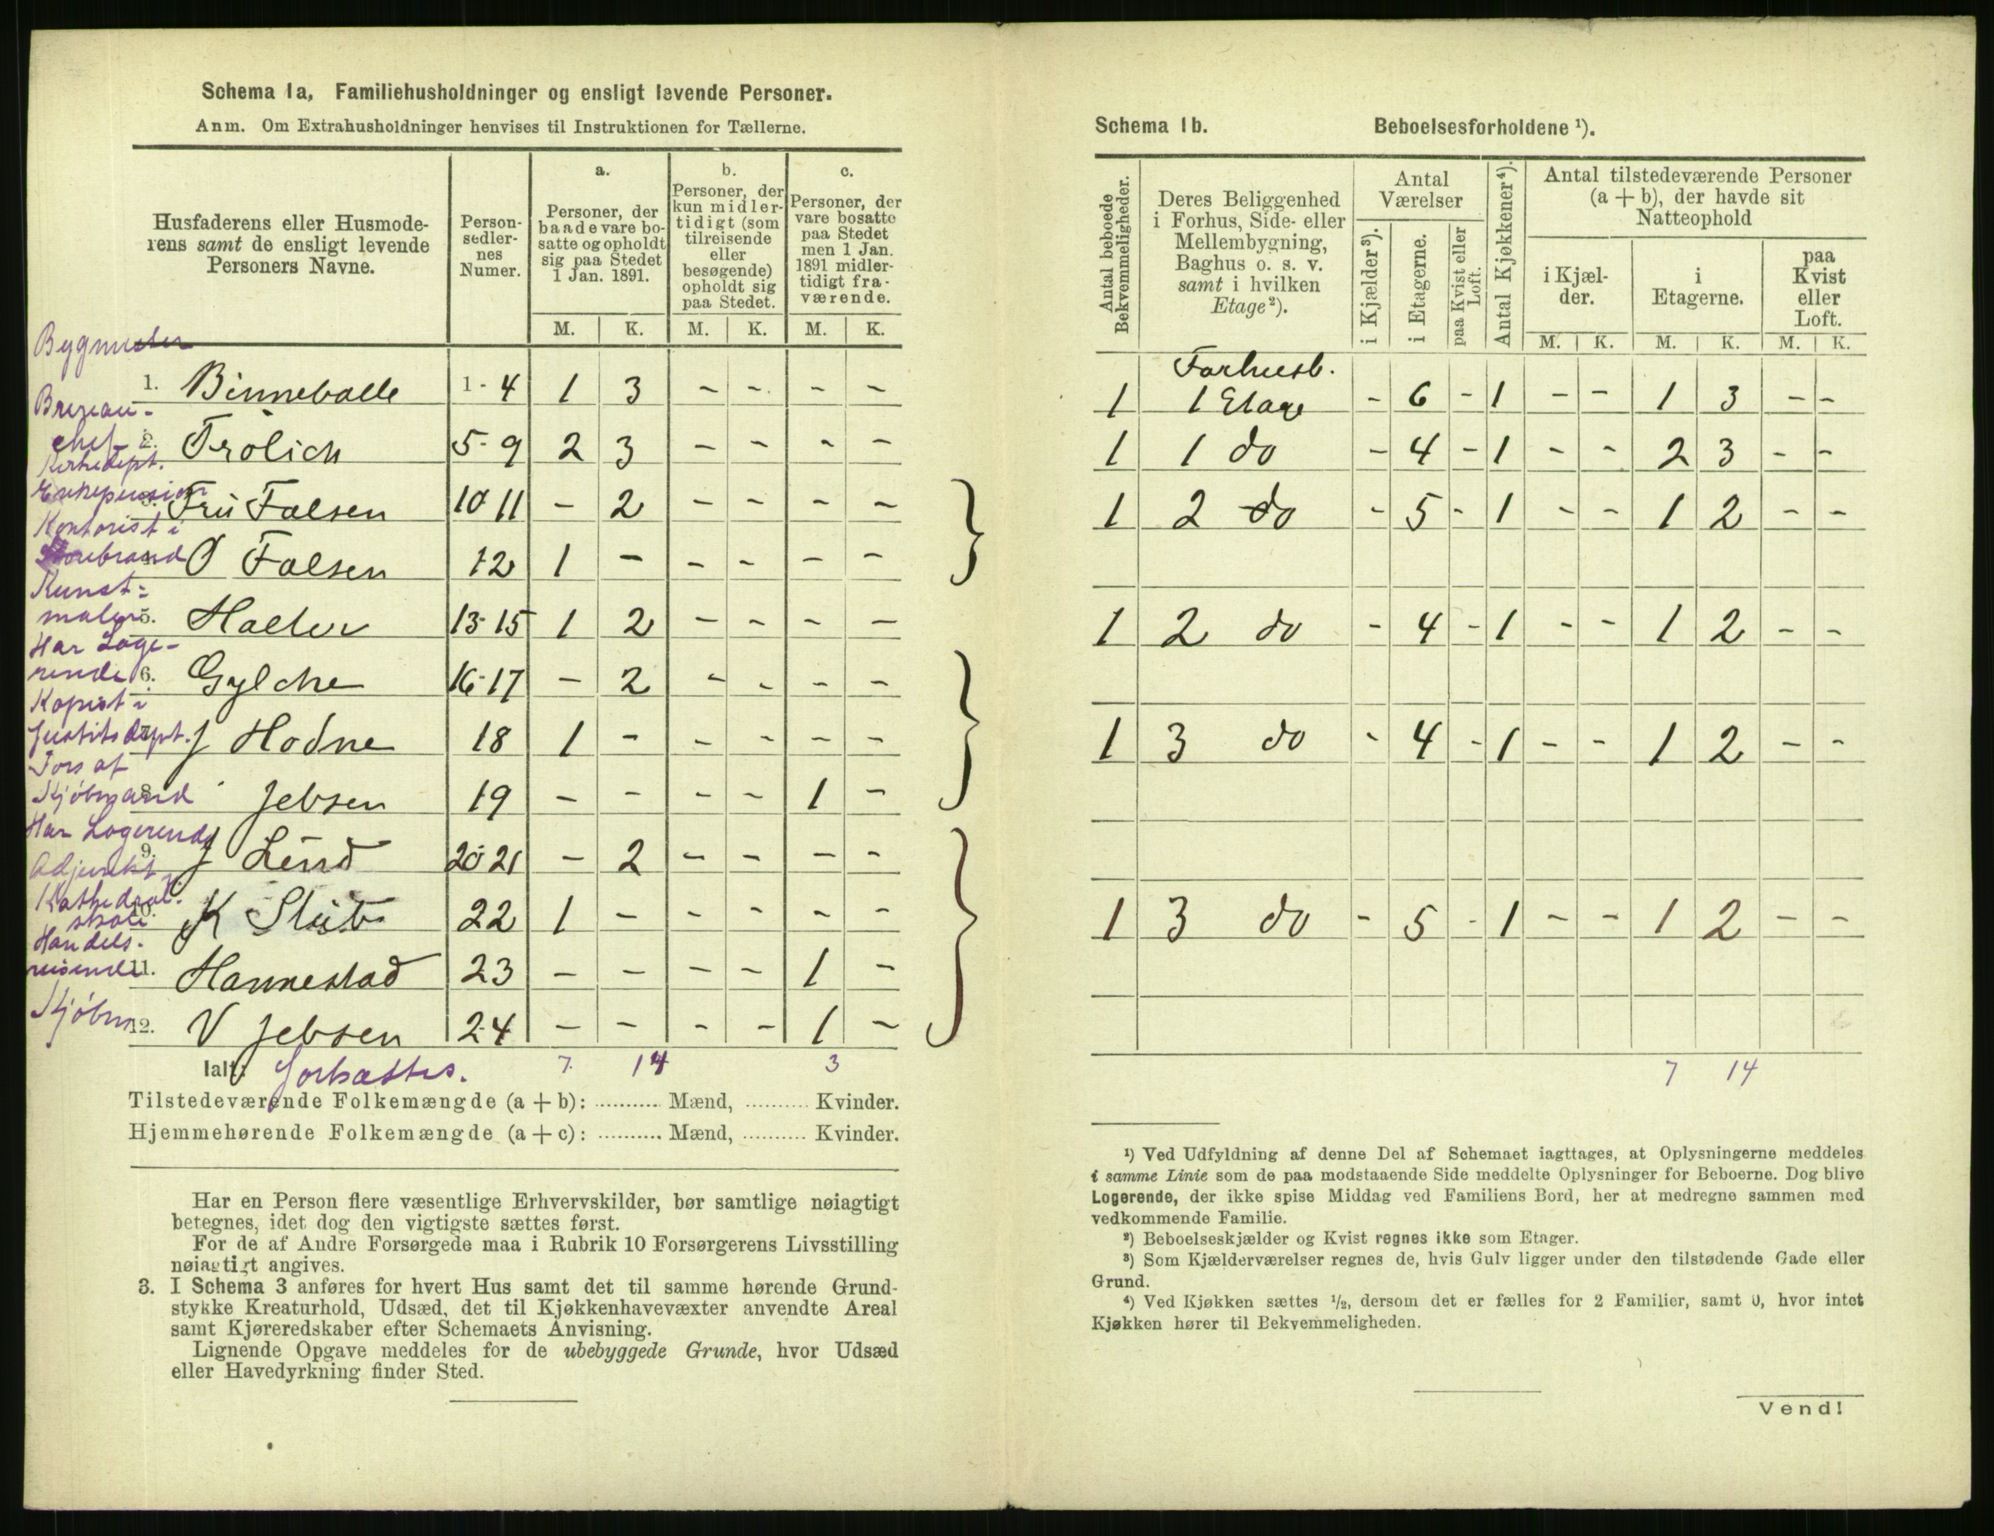 Schema 1a, Familiehusholdninger og ensligt levende Personer.
Anm. Om Extrahusholdninger henvises til Instruktionen for Tællerne.
Husfaderens eller Husmode-
rens samt de ensligt levende
Personers Navne.
Person-
sedler-
nes
Numer.
a.
Personer, der
baade vare bo-
satte og opholdt
sig paa Stedet
1 Jan. 1891.
b.
Personer, der
kun midler-
tidigt (som
tilreisende
eller
besøgende)
opholdt sig
paa Stedet.
c.
Personer, der
vare bosatte
paa Stedet
men 1 Jan.
1891 midler-
tidigt fra-
værende.
M. K. M. K. M. K.
Bygmester
1. Binneballe 1-4 1 3 - - - -
Bureau-
chef
Kirkedept.
2. Frølich 5-9 2 3 - - - -
Enkepension
3. Fru Falsen 10 11 - 2 - - - -
Kontorist i
Storebrand
4. O Falsen 12 1 - - - - -
Kunst-
maler
5. Halter 13-15 1 2 - - - -
Har Loge-
rende
6. Gylche 16-17 - 2 - - - -
Kopist i
Justitsdept.
7. J Hodne 18 1 - - - - -
Fors af
Kjøbmand
8. Jebsen 19 - - - - 1 -
Har Logerende
9. J Lund 20-21 - 2 - - - -
Adjunkt
Kathedral-
skole
10. K Stub 22 1 - - - - -
Handels-
reisende
11. Hannestad 23 - - - - 1 -
Kjøbm
12. V Jebsen 24 - - - - 1 -
Ialt: Forsættes. 7 14 3
Tilstedeværende Folkemængde (a + b): .......... Mænd, .......... Kvinder.
Hjemmehørende Folkemængde (a + c): .......... Mænd, .......... Kvinder.
Har en Person flere væsentlige Erhvervskilder, bør samtlige nøiagtigt
betegnes, idet dog den vigtigste sættes først.
For de af Andre Forsørgede maa i Rubrik 10 Forsørgerens Livsstilling
nøiagtigt angives.
3. I Schema 3 anføres for hvert Hus samt det til samme hørende Grund-
stykke Kreaturhold, Udsæd, det til Kjøkkenhavevæxter anvendte Areal
samt Kjøreredskaber efter Schemaets Anvisning.
Lignende Opgave meddeles for de ubebyggede Grunde, hvor Udsæd
eller Havedyrkning finder Sted.
Schema 1b. Beboelsesforholdene ¹).
Antal beboede
Bekvemmeligheder.
Deres Beliggenhed
i Forhus, Side- eller
Mellembygning,
Baghus o. s. v.
samt i hvilken
Etage²).
Antal
Værelser
i Kjælder³).
i Etagerne.
paa Kvist eller
Loft.
Antal Kjøkkener⁴).
Antal tilstedeværende Personer
(a + b), der havde sit
Natteophold
i Kjæl-
der.
i
Etagerne.
paa
Kvist
eller
Loft.
M. K. M. K. M. K.
Forhusb.
1 1 Etage - 6 - 1 - - 1 3 - -
1 1 do - 4 - 1 - - 2 3 - -
1 2 do - 5 - 1 - - 1 2 - -
1 2 do - 4 - 1 - - 1 2 - -
1 3 do - 4 - 1 - - 1 2 - -
1 3 do - 5 - 1 - - 1 2 - -
7 14
¹) Ved Udfyldning af denne Del af Schemaet iagttages, at Oplysningerne meddeles
i samme Linie som de paa modstaaende Side meddelte Oplysninger for Beboerne. Dog blive
Logerende, der ikke spise Middag ved Familiens Bord, her at medregne sammen med
vedkommende Familie.
²) Beboelseskjælder og Kvist regnes ikke som Etager.
³) Som Kjælderværelser regnes de, hvis Gulv ligger under den tilstødende Gade eller
Grund.
⁴) Ved Kjøkken sættes ½, dersom det er fælles for 2 Familier, samt 0, hvor intet
Kjøkken hører til Bekvemmeligheden.
Vend!